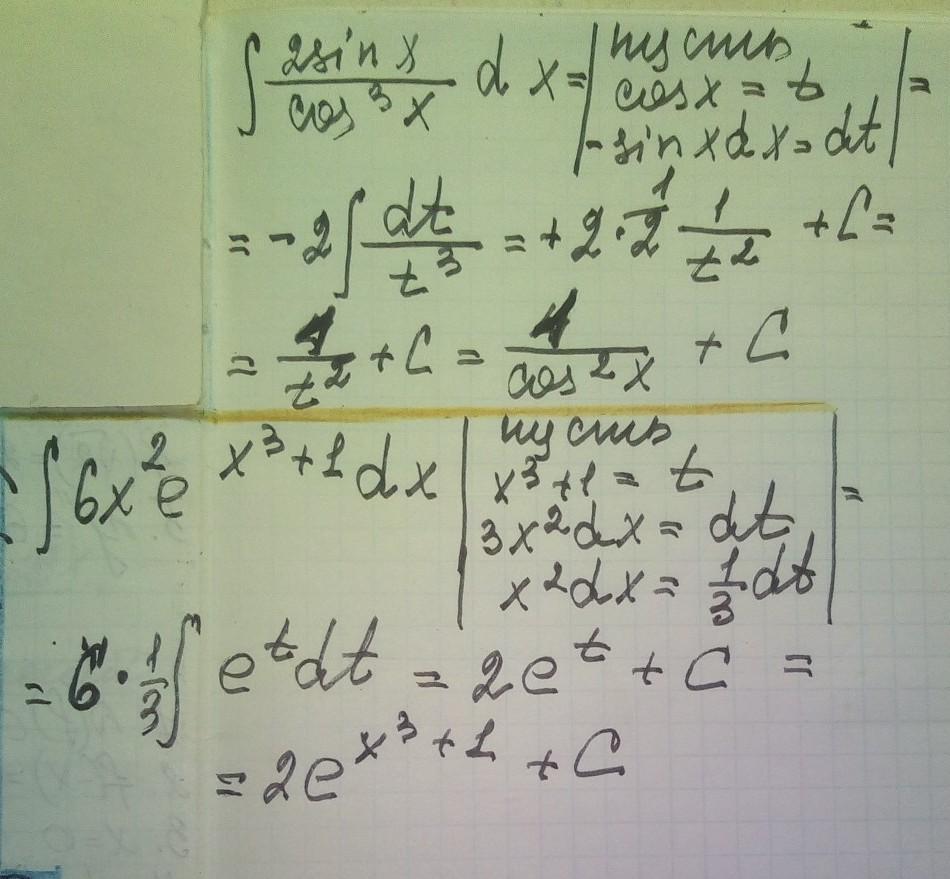 ∫ 2sin x / cos³ x d x = | пусть cos x = t, -sin x dx = dt | =
= -2 ∫ dt / t³ = +2 · 1/2 1/t² + C =
= 1/t² + C = 1/cos² x + C
∫ 6x² e^(x³+1) dx | пусть x³+1 = t, 3x²dx = dt, x²dx = 1/3 dt | =
= 6 · 1/3 ∫ e^t dt = 2e^t + C =
= 2e^(x³+1) + C